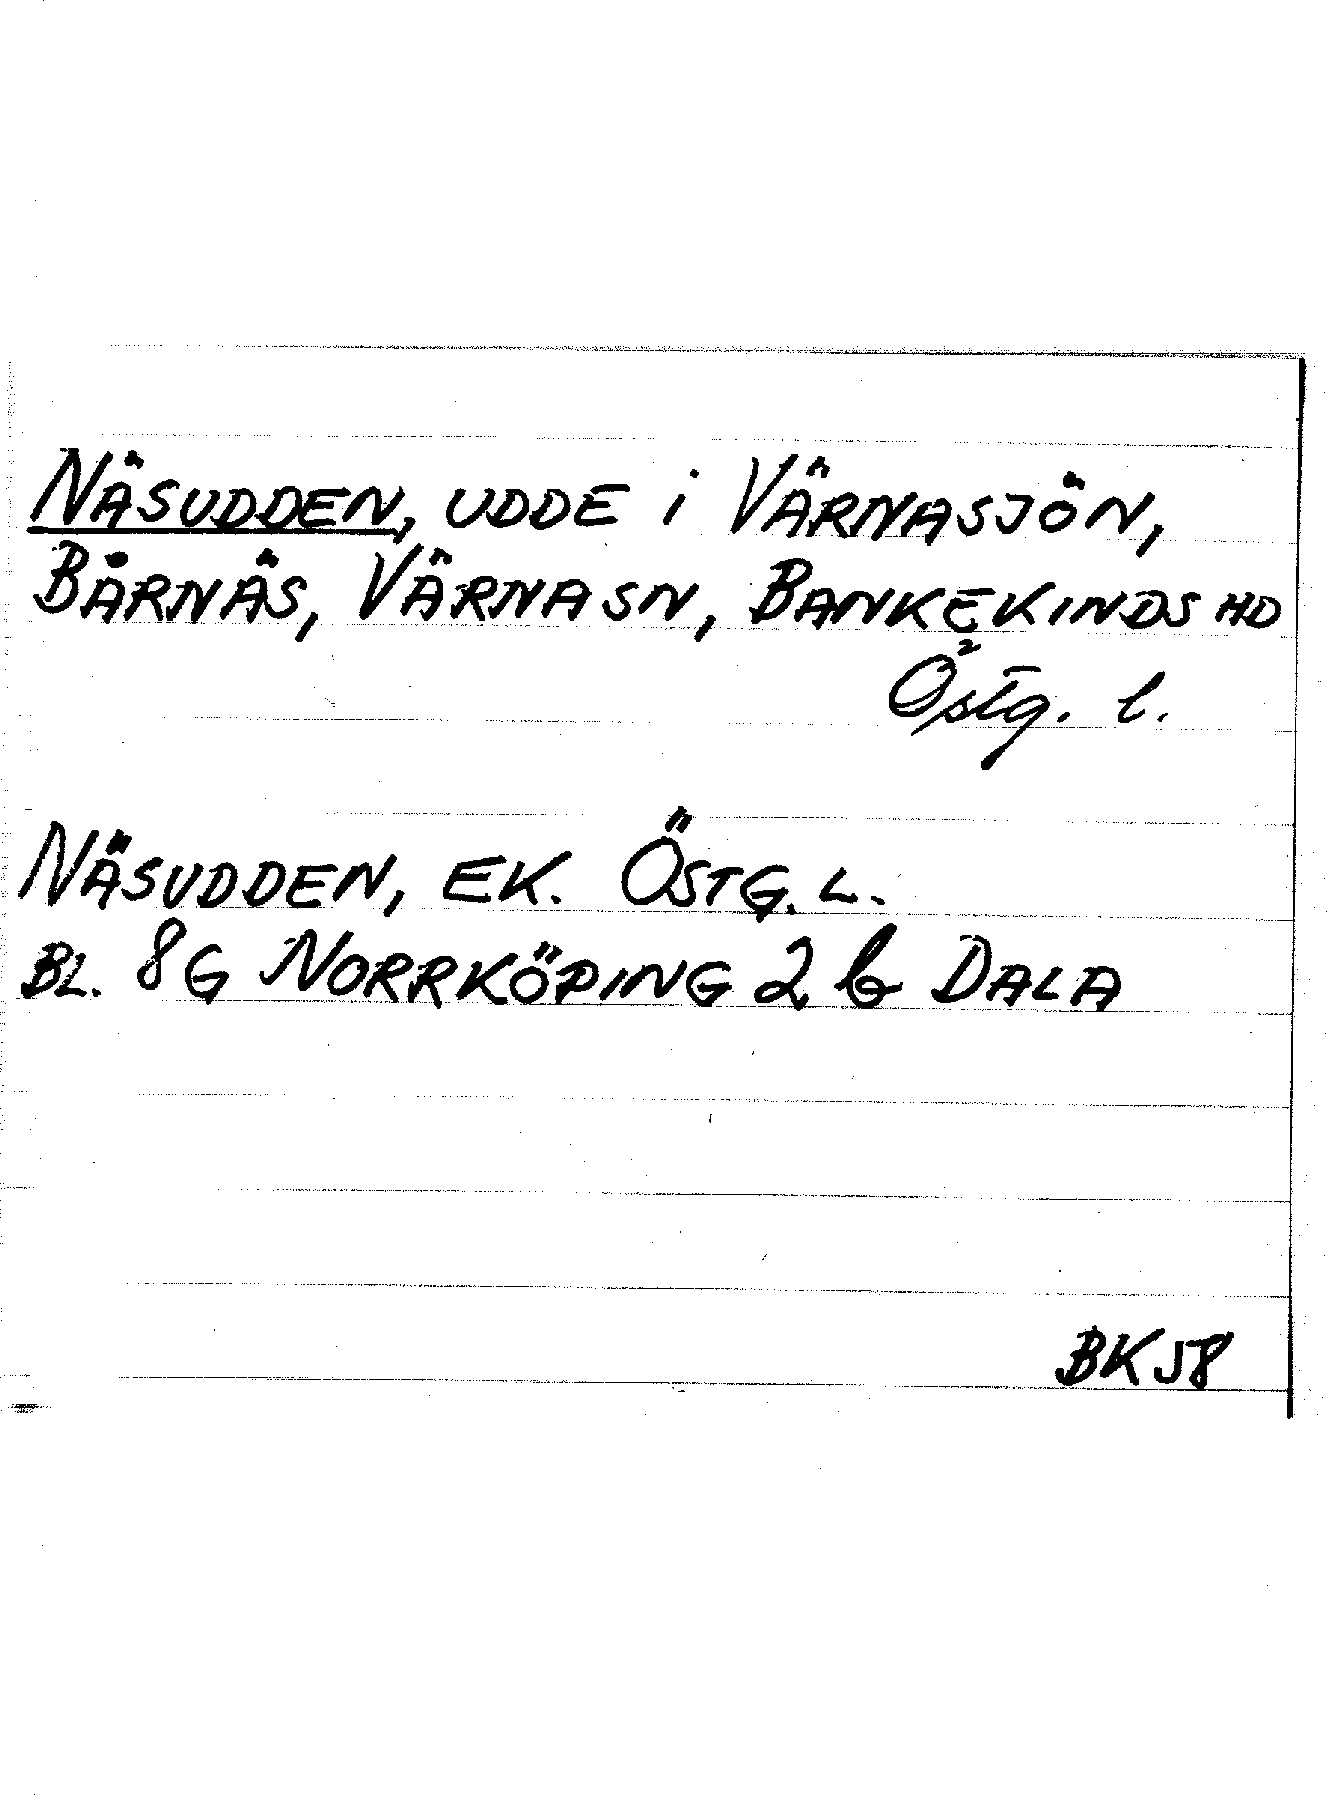 NÄSUDDEN, UDDE i VÄRNASJÖN,
BÅRNÄS, VÄRNA SN, BANKEKINDS HD
Östg. l.
NÄSUDDEN, EK. ÖSTG. L.
BL. 8G NORRKÖPING 2 b DALA
BK 58